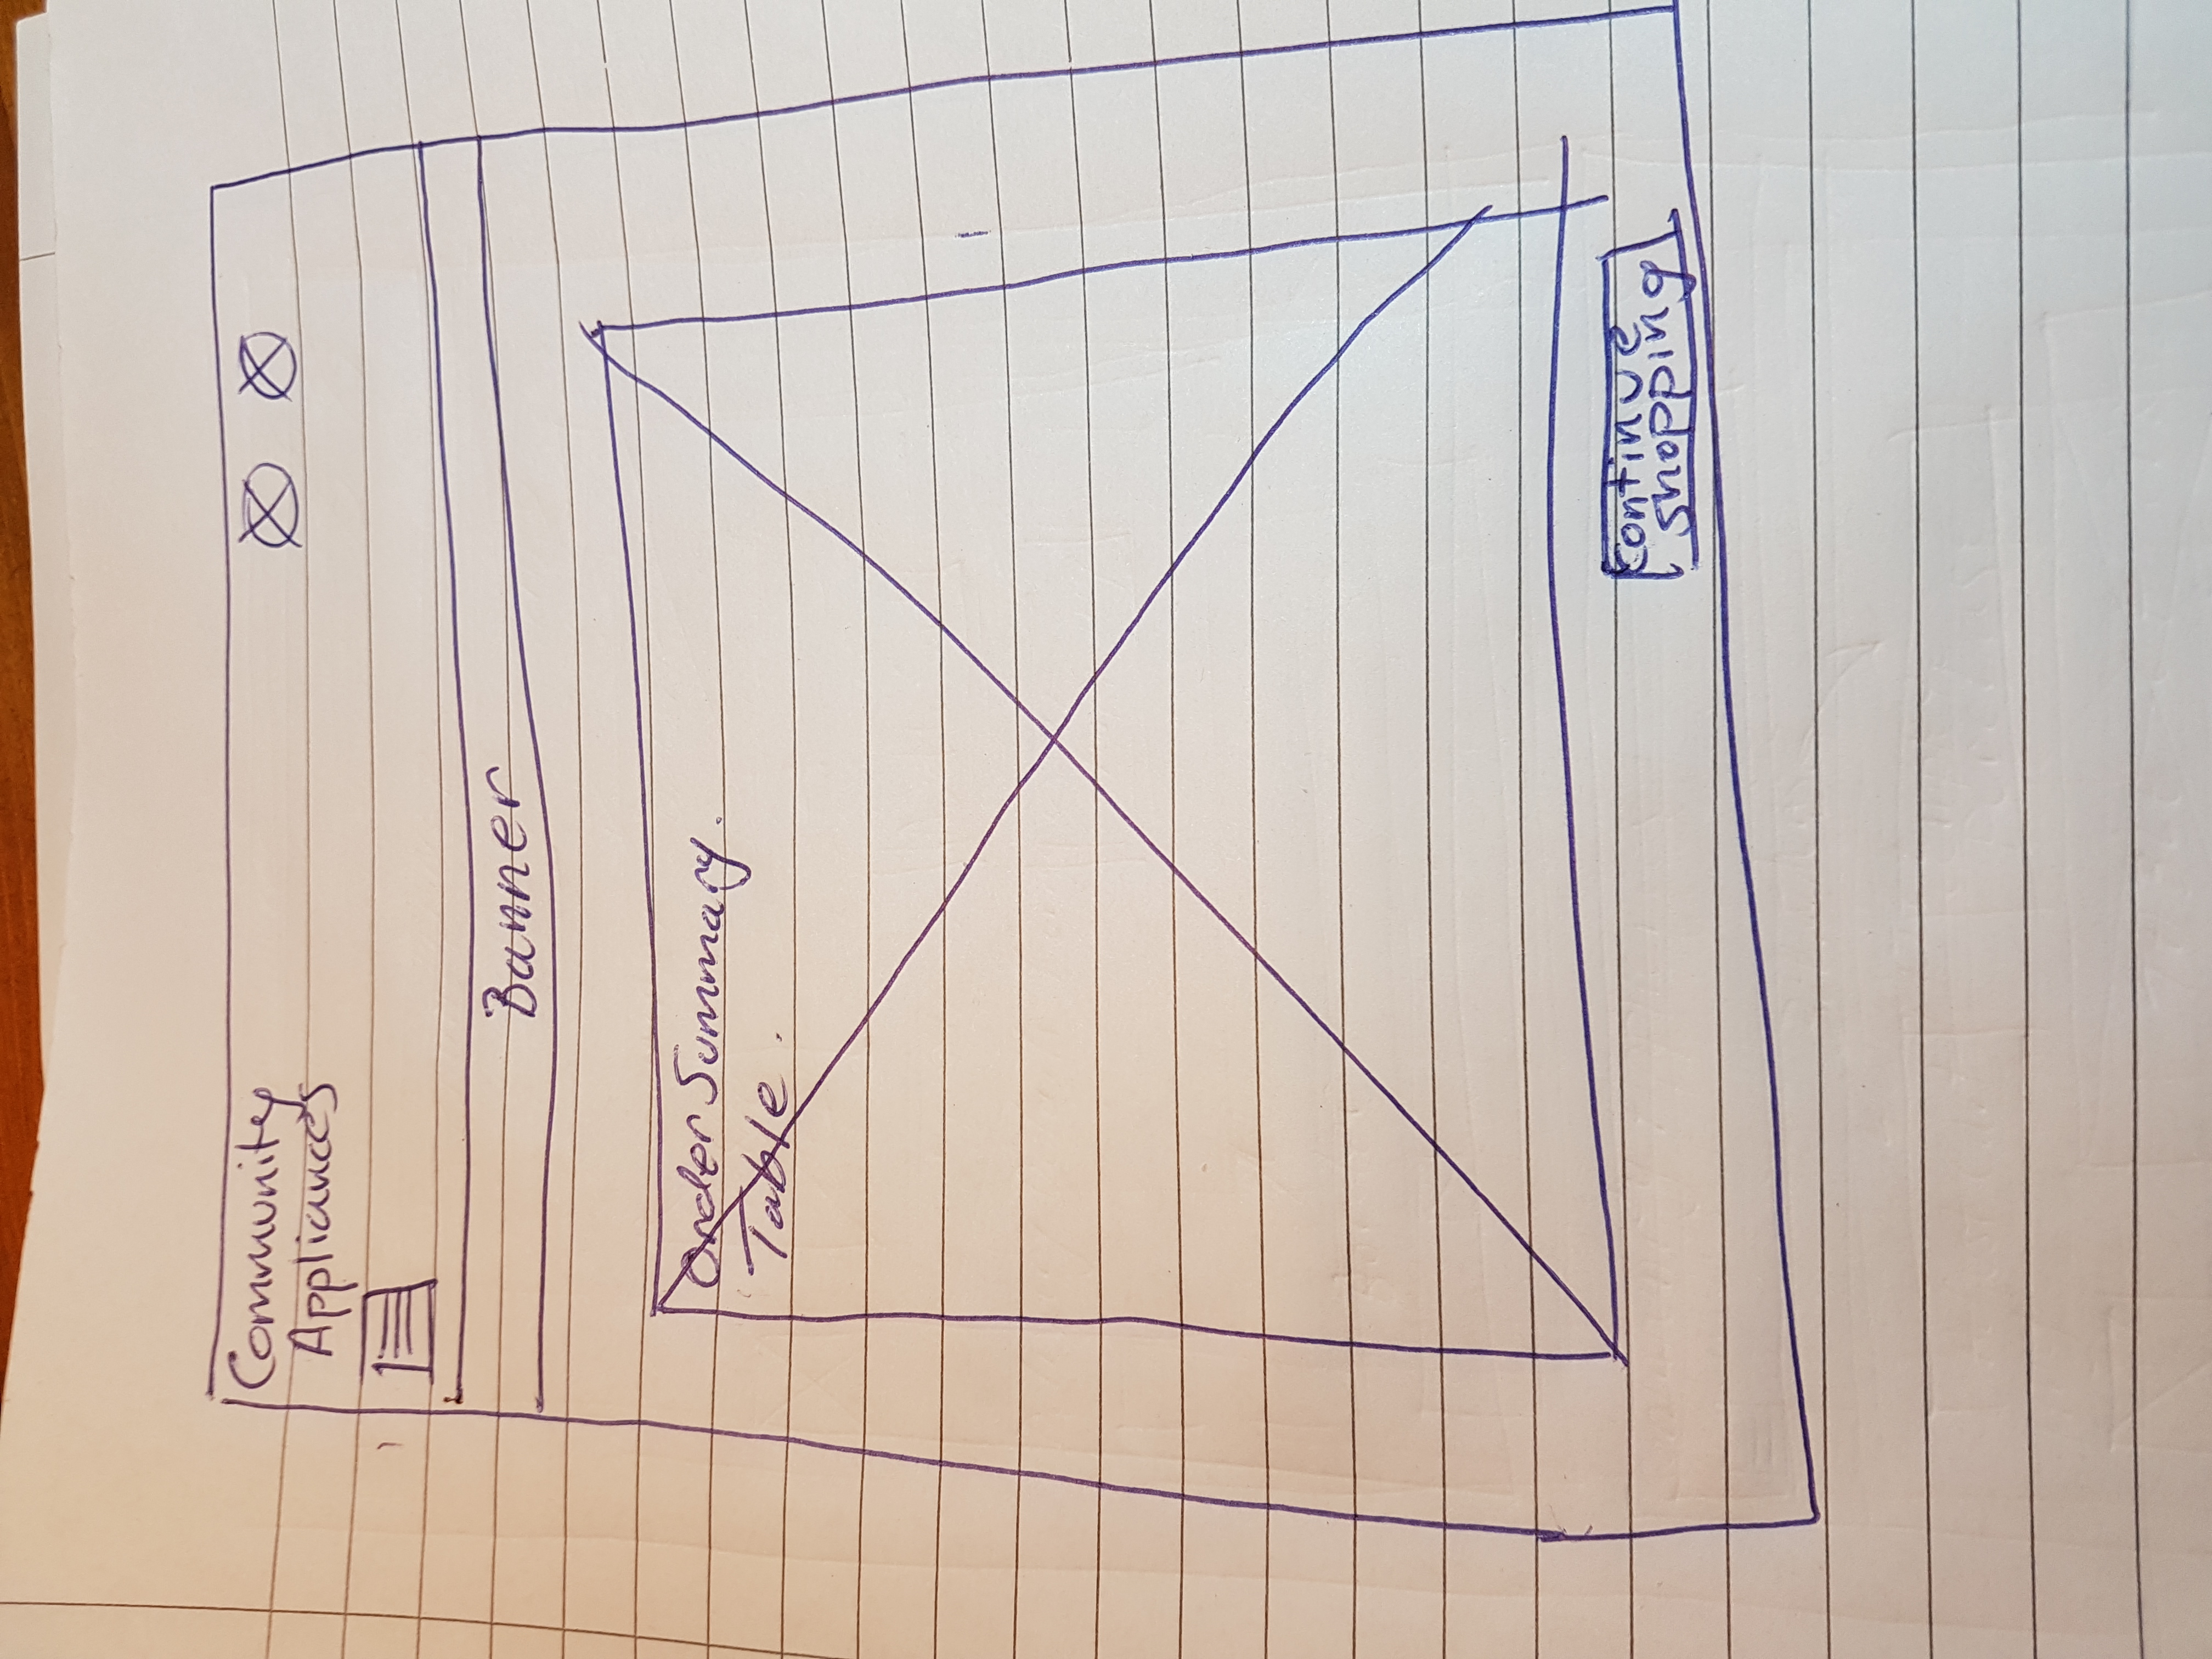 Community
Appliances
Banner
Order Summary.
Table.
Continue
Shopping